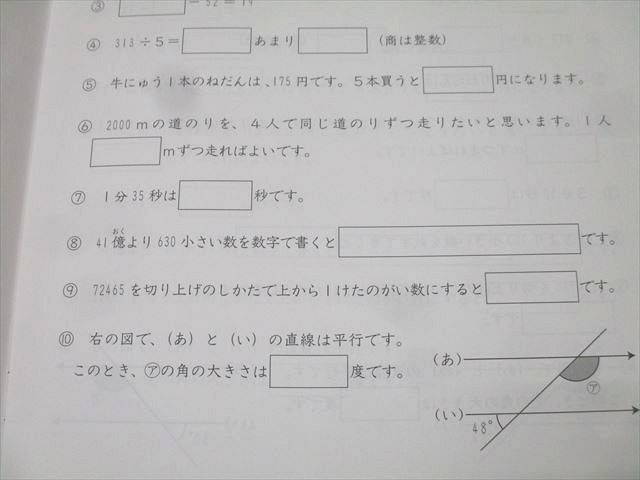 ③ － 52 ＝ 19
④ 313÷5＝ あまり （商は整数）
⑤ 牛にゅう1本のねだんは、175円です。5本買うと 円になります。
⑥ 2000 mの道のりを、4人で同じ道のりずつ走りたいと思います。1人
mずつ走ればよいです。
⑦ 1分35秒は 秒です。
おく
⑧ 41億より630小さい数を数字で書くと です。
⑨ 72465を切り上げのしかたで上から1けたのがい数にすると です。
⑩ 右の図で、（あ）と（い）の直線は平行です。
このとき、㋐の角の大きさは 度です。
（あ）
㋐
（い）
48°